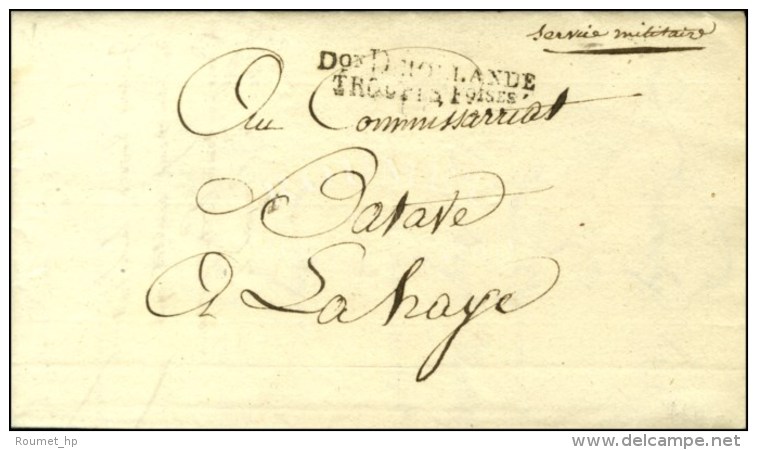 service militaire
Don D HOLLANDE
TROUPES FOISES
Au Commissarriat
Batave
A La haye
Roumet_hp
delcampe.net